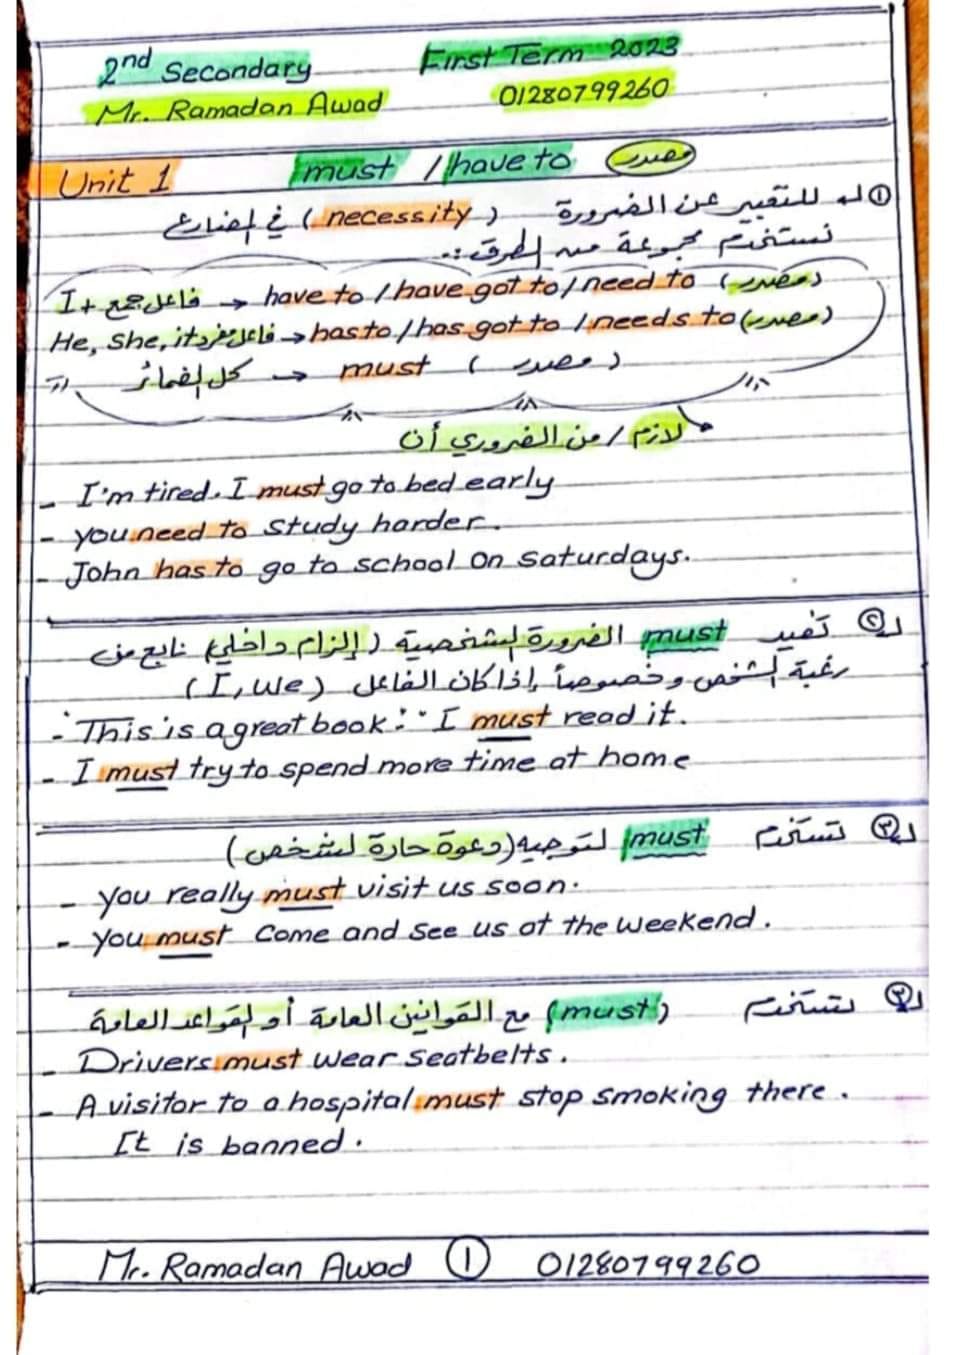 2nd Secondary First Term 2023
Mr. Ramadan Awad 01280799260
Unit 1 must / have to مصدر
① للتعبير عن الضرورة (necessity) في المضارع
نستخدم مجموعة من الطرق:-
I + فاعل جمع → have to / have got to / need to (مصدر)
He, She, it فاعل مفرد → has to / has got to / needs to (مصدر)
كل الضمائر → must (مصدر)
لازم / من الضروري أن
- I'm tired. I must go to bed early
- you need to study harder.
- John has to go to school on Saturdays.
② تفيد must الضرورة الشخصية (إلزام داخلي) نابع من
رغبة الشخص وخصوصاً إذا كان الفاعل (I, we)
- This is a great book. I must read it.
- I must try to spend more time at home
③ تستخدم must لتوجيه (دعوة حارة لشخص)
- you really must visit us soon.
- you must come and see us at the weekend.
③ تستخدم (must) مع القوانين العامة أو القواعد العامة
- Drivers must wear seatbelts.
- A visitor to a hospital must stop smoking there.
It is banned.
Mr. Ramadan Awad ① 01280799260